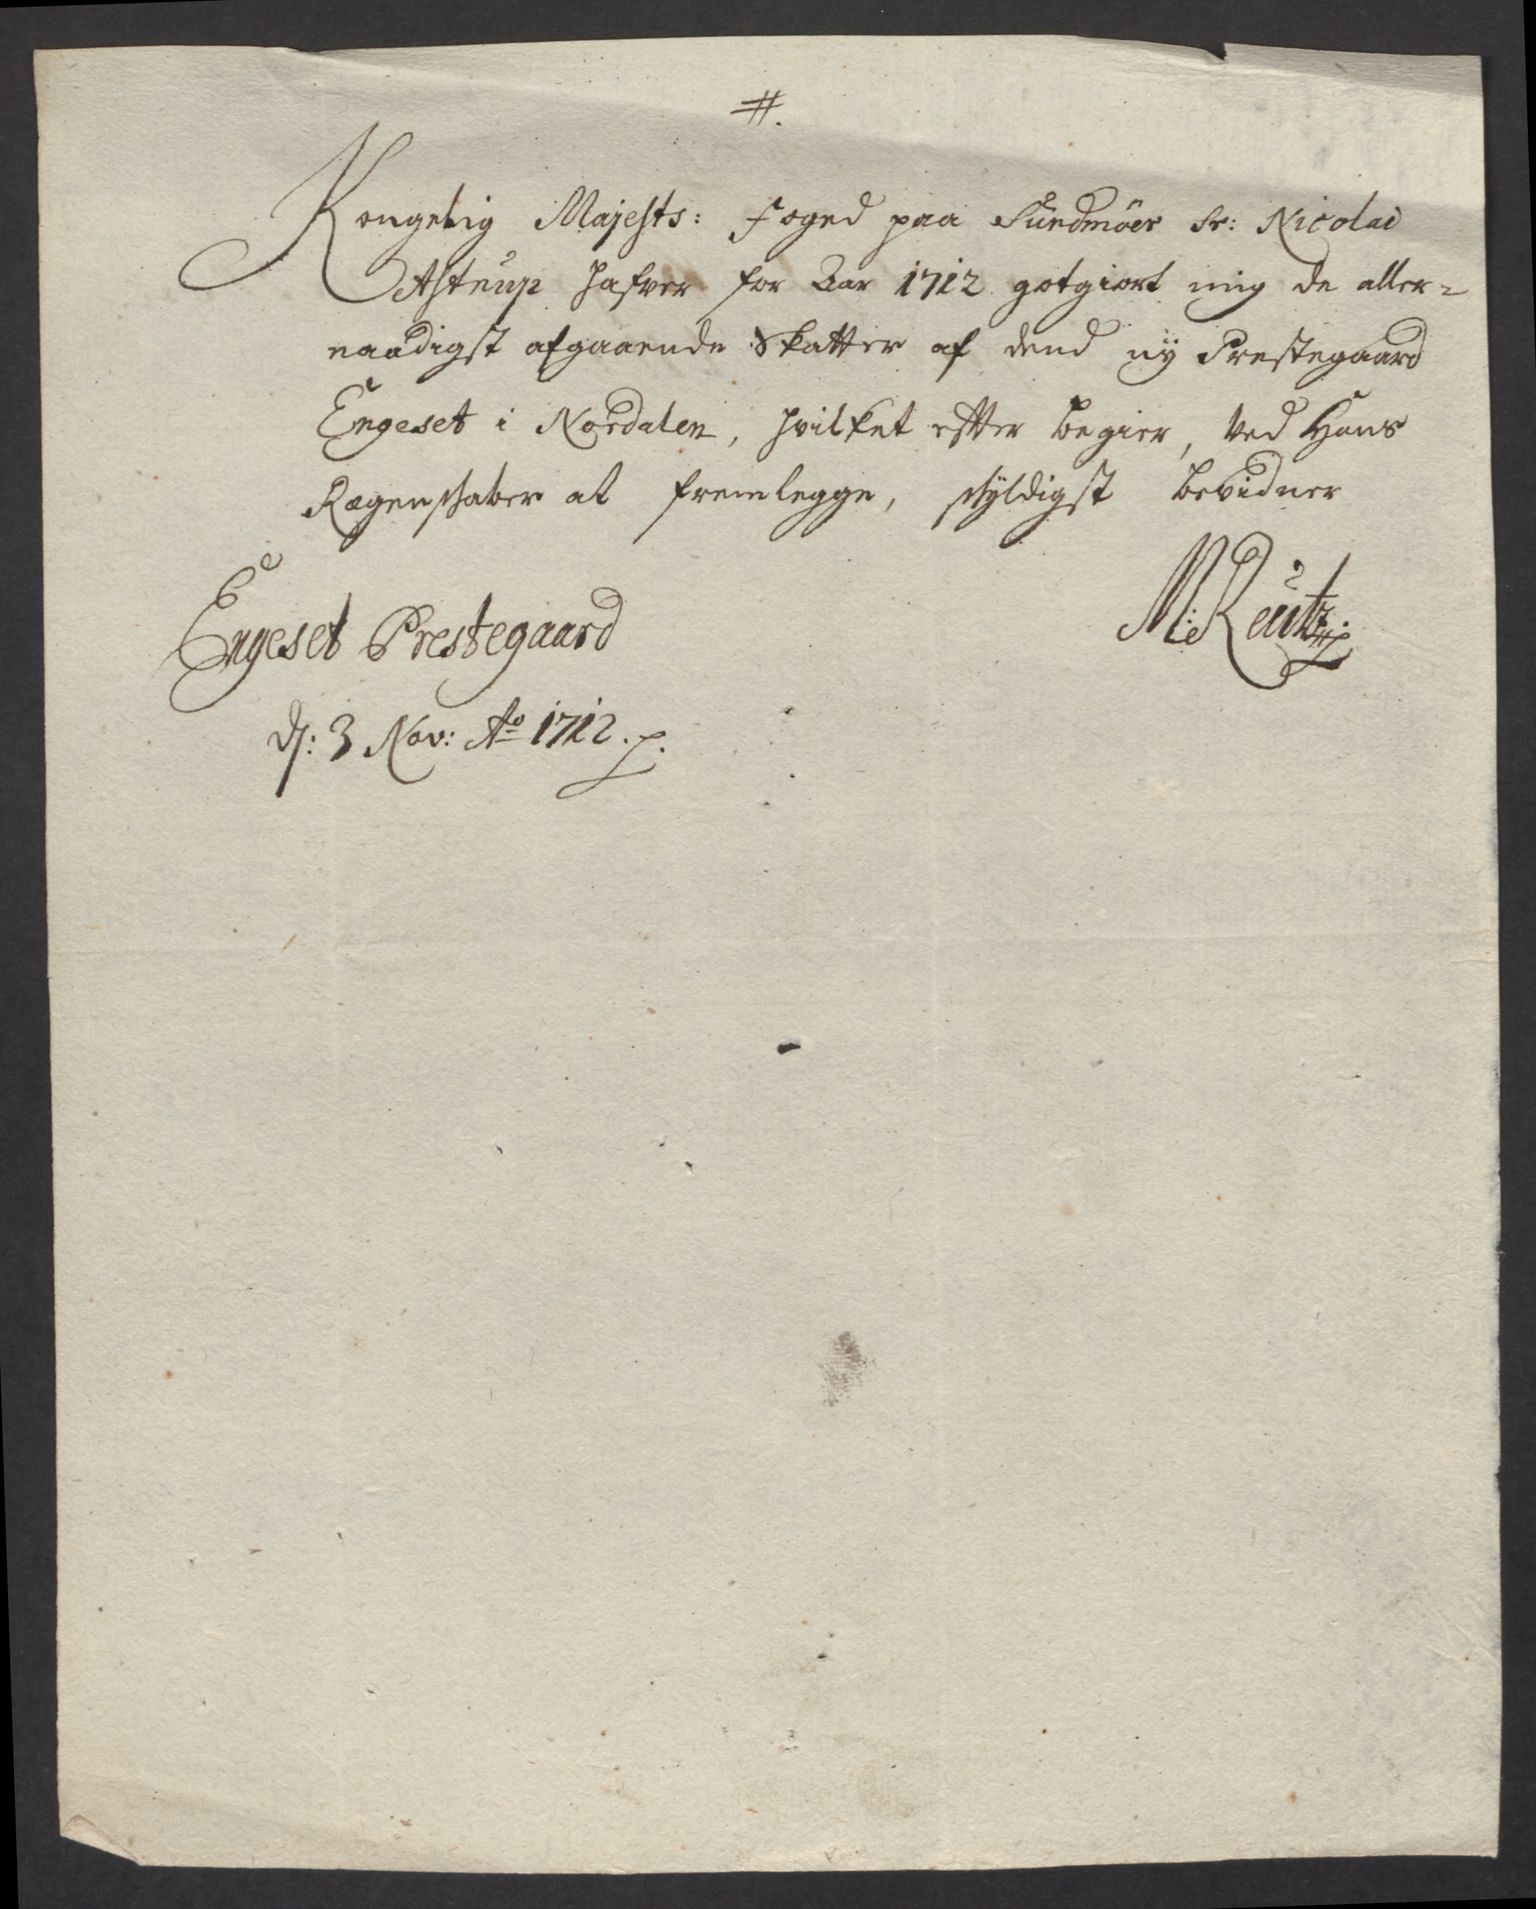 #.
Kongelig Majests: foged paa Sundmöer Sr: Nicolai
Astrup hafver for Aar 1712 gotgiort mig de aller=
naadigst afgaaende Skatter af dend nÿ Prestegaard
Engeset i Nordalen, hvilket efter begier, ved Hans
Rægenskaber at fremlegge, skyldigst bevidner
M: Reutz
Engeset Prestegaard
d: 3 Nov: Ao 1712.